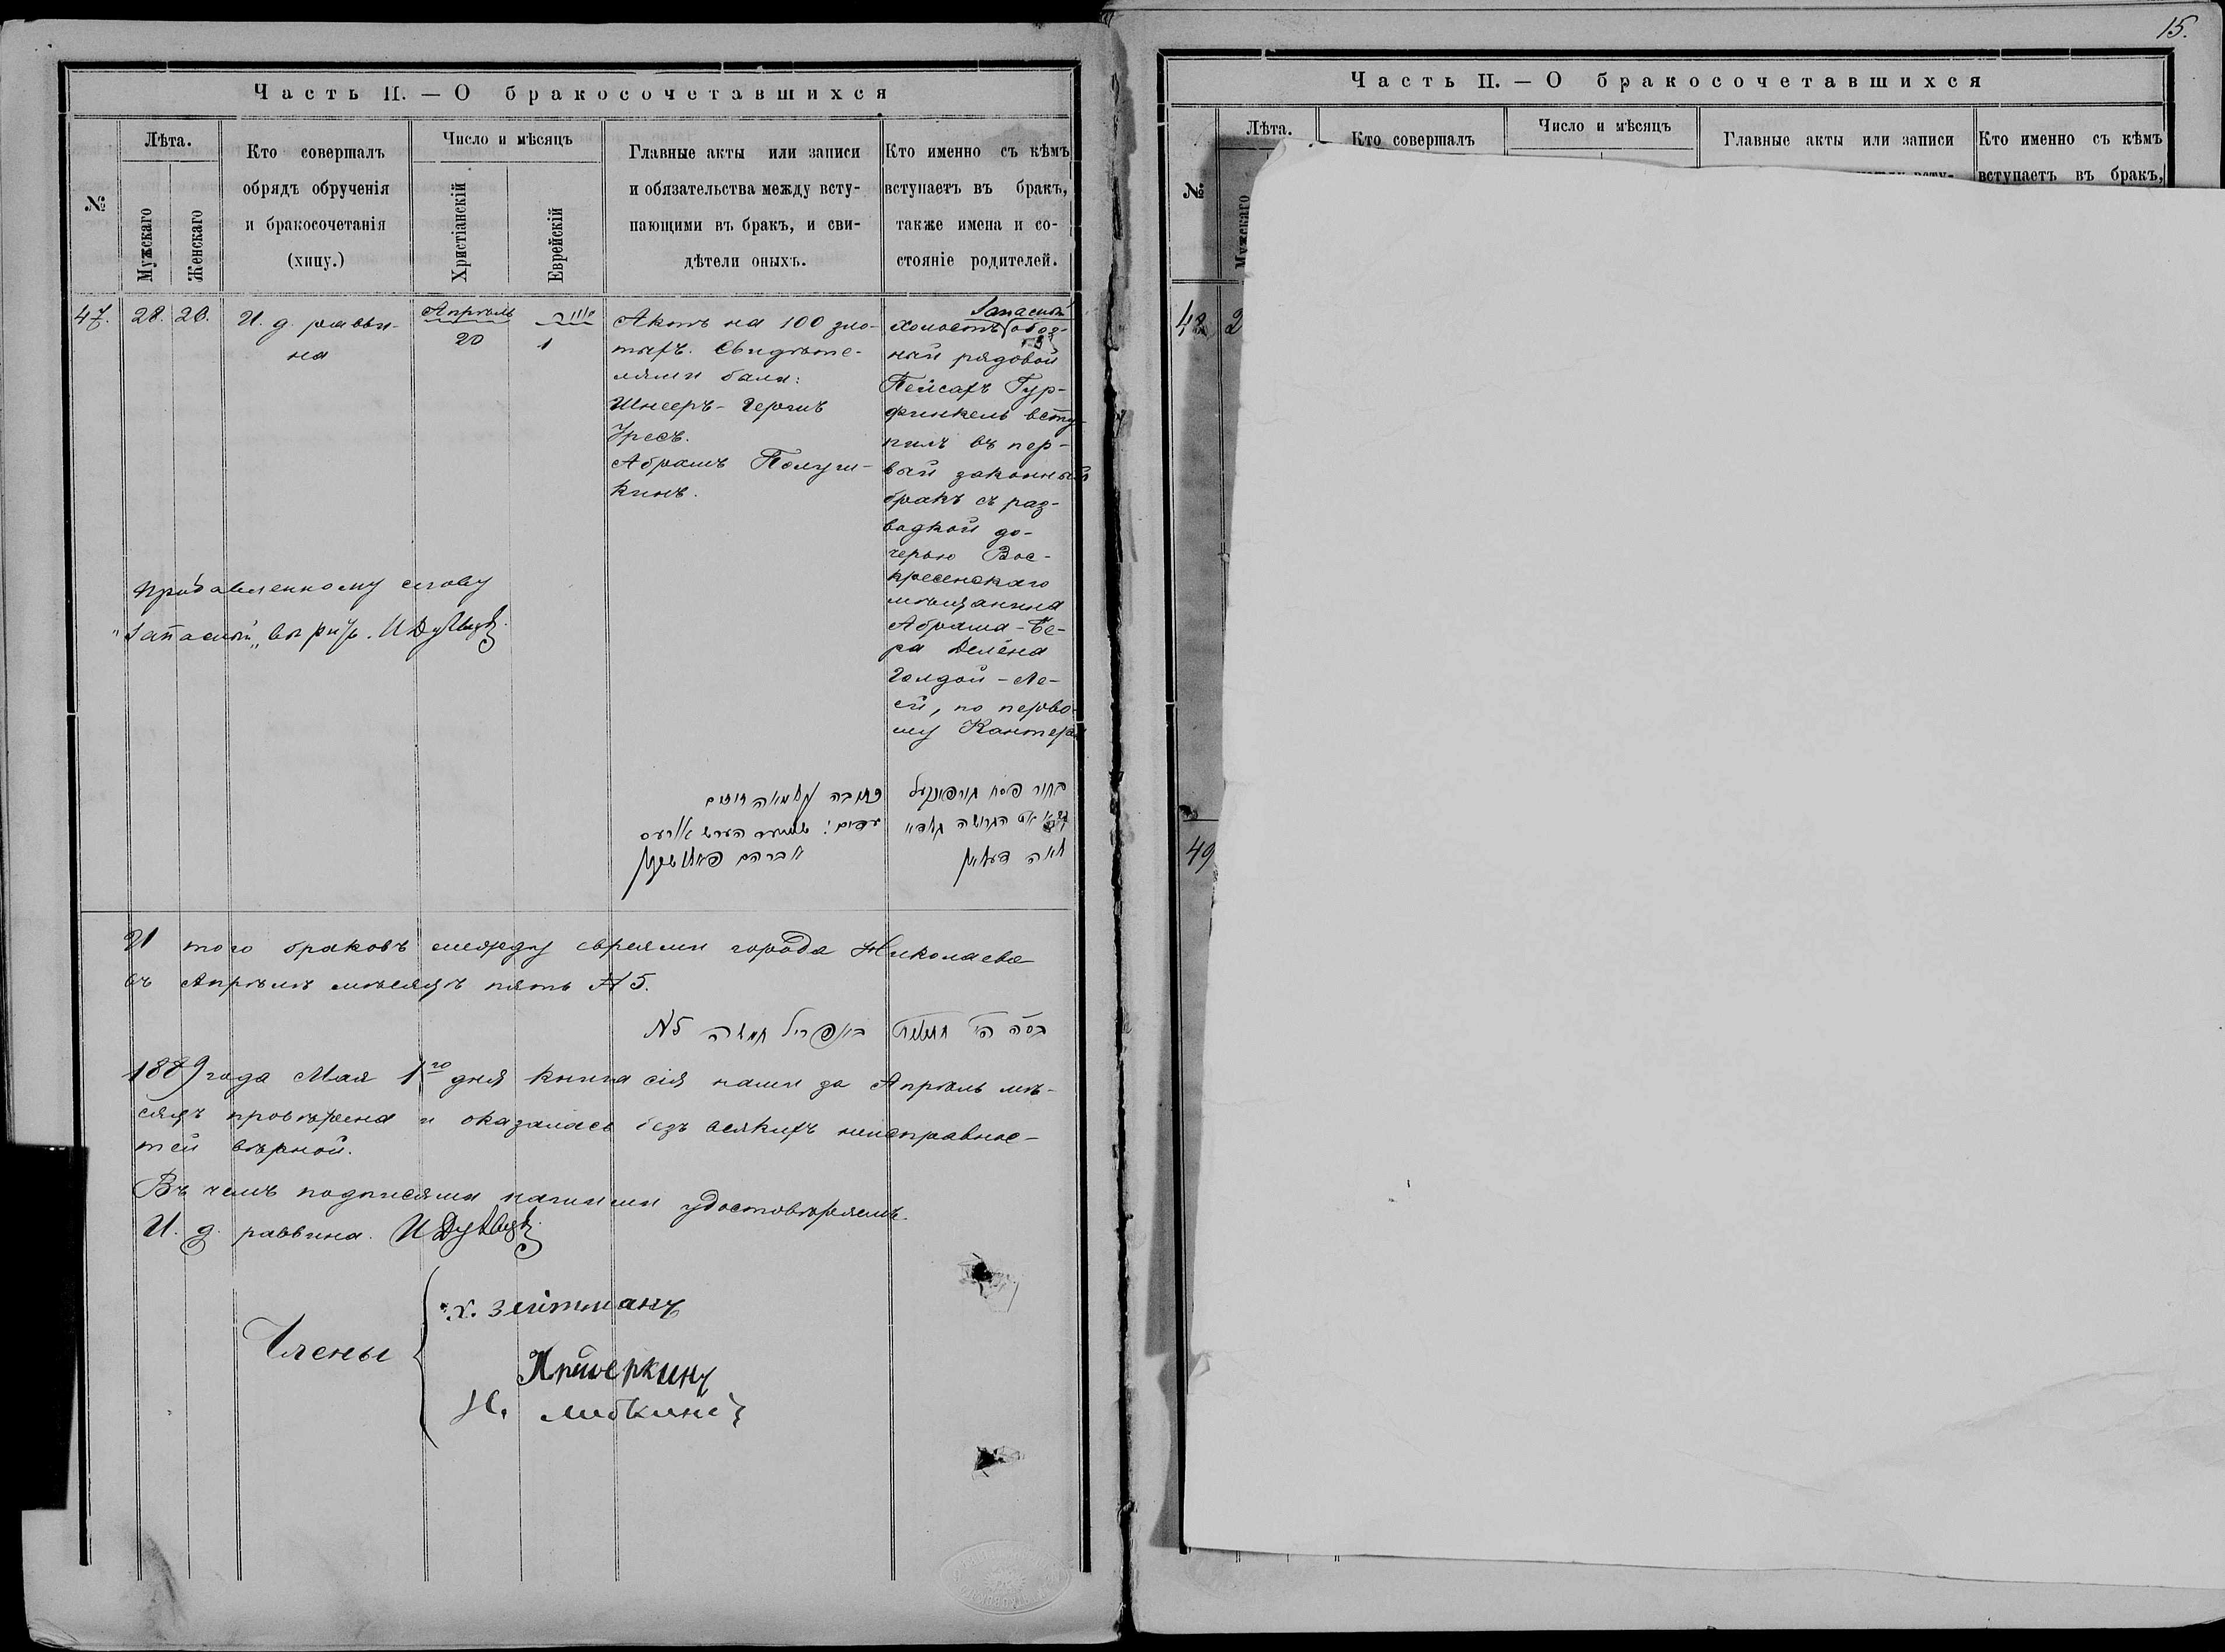 15.
Часть II. — О бракосочетавшихся
№
Лѣта.
Мужскаго
Женскаго
Кто совершалъ
обрядъ обрученія
и бракосочетанія
(хупу.)
Число и мѣсяцъ
Христіанскій
Еврейскій
Главные акты или записи
и обязательства между всту-
пающими въ бракъ, и сви-
дѣтели оныхъ.
Кто именно съ кѣмъ
вступаетъ въ бракъ,
также имена и со-
стояніе родителей.
47.
28. 20.
И. д. равви-
на
Апрѣль
20
1
Актъ на 100 зло-
тыхъ. Свидѣте-
лями были:
Шнееръ-Гершъ
Уресъ.
Абрамъ Полуш-
кинъ.
Запасный
холостъ обоз-
ный рядовой
Пейсахъ Гур-
финкель всту-
пилъ въ пер-
вый законный
бракъ съ раз-
водкой до-
черью Вос-
кресенскаго
мѣщанина
Абрама-Бе-
ра Делена
Голдой-Ле-
ей, по перво-
му Кантеръ
Прибавленному слову
"Запасный" вѣрить.
בחור פסח גורפינקעל
הגרושה גאלדא
לאה
כתובה מאה זהובים
עדים: שניאור הערש
אברהם
Итого браковъ между евреями города Николаева
въ Апрѣлѣ мѣсяцѣ пять № 5.
באפריל חמשה №5
1889 года Мая 1го дня книга сія нами за Апрѣль мѣ-
сяцъ провѣрена и оказалась безъ всякихъ неисправнос-
тей вѣрной.
Въ чемъ подписями нашими удостовѣряемъ.
И. д. раввина.
Члены
Х. Зейтманъ
Н.
Часть II. — О бракосочетавшихся
№
Лѣта.
Мужскаго
Кто совершалъ
Число и мѣсяцъ
Главные акты или записи
Кто именно съ кѣмъ
вступаетъ въ бракъ,
48 2
49